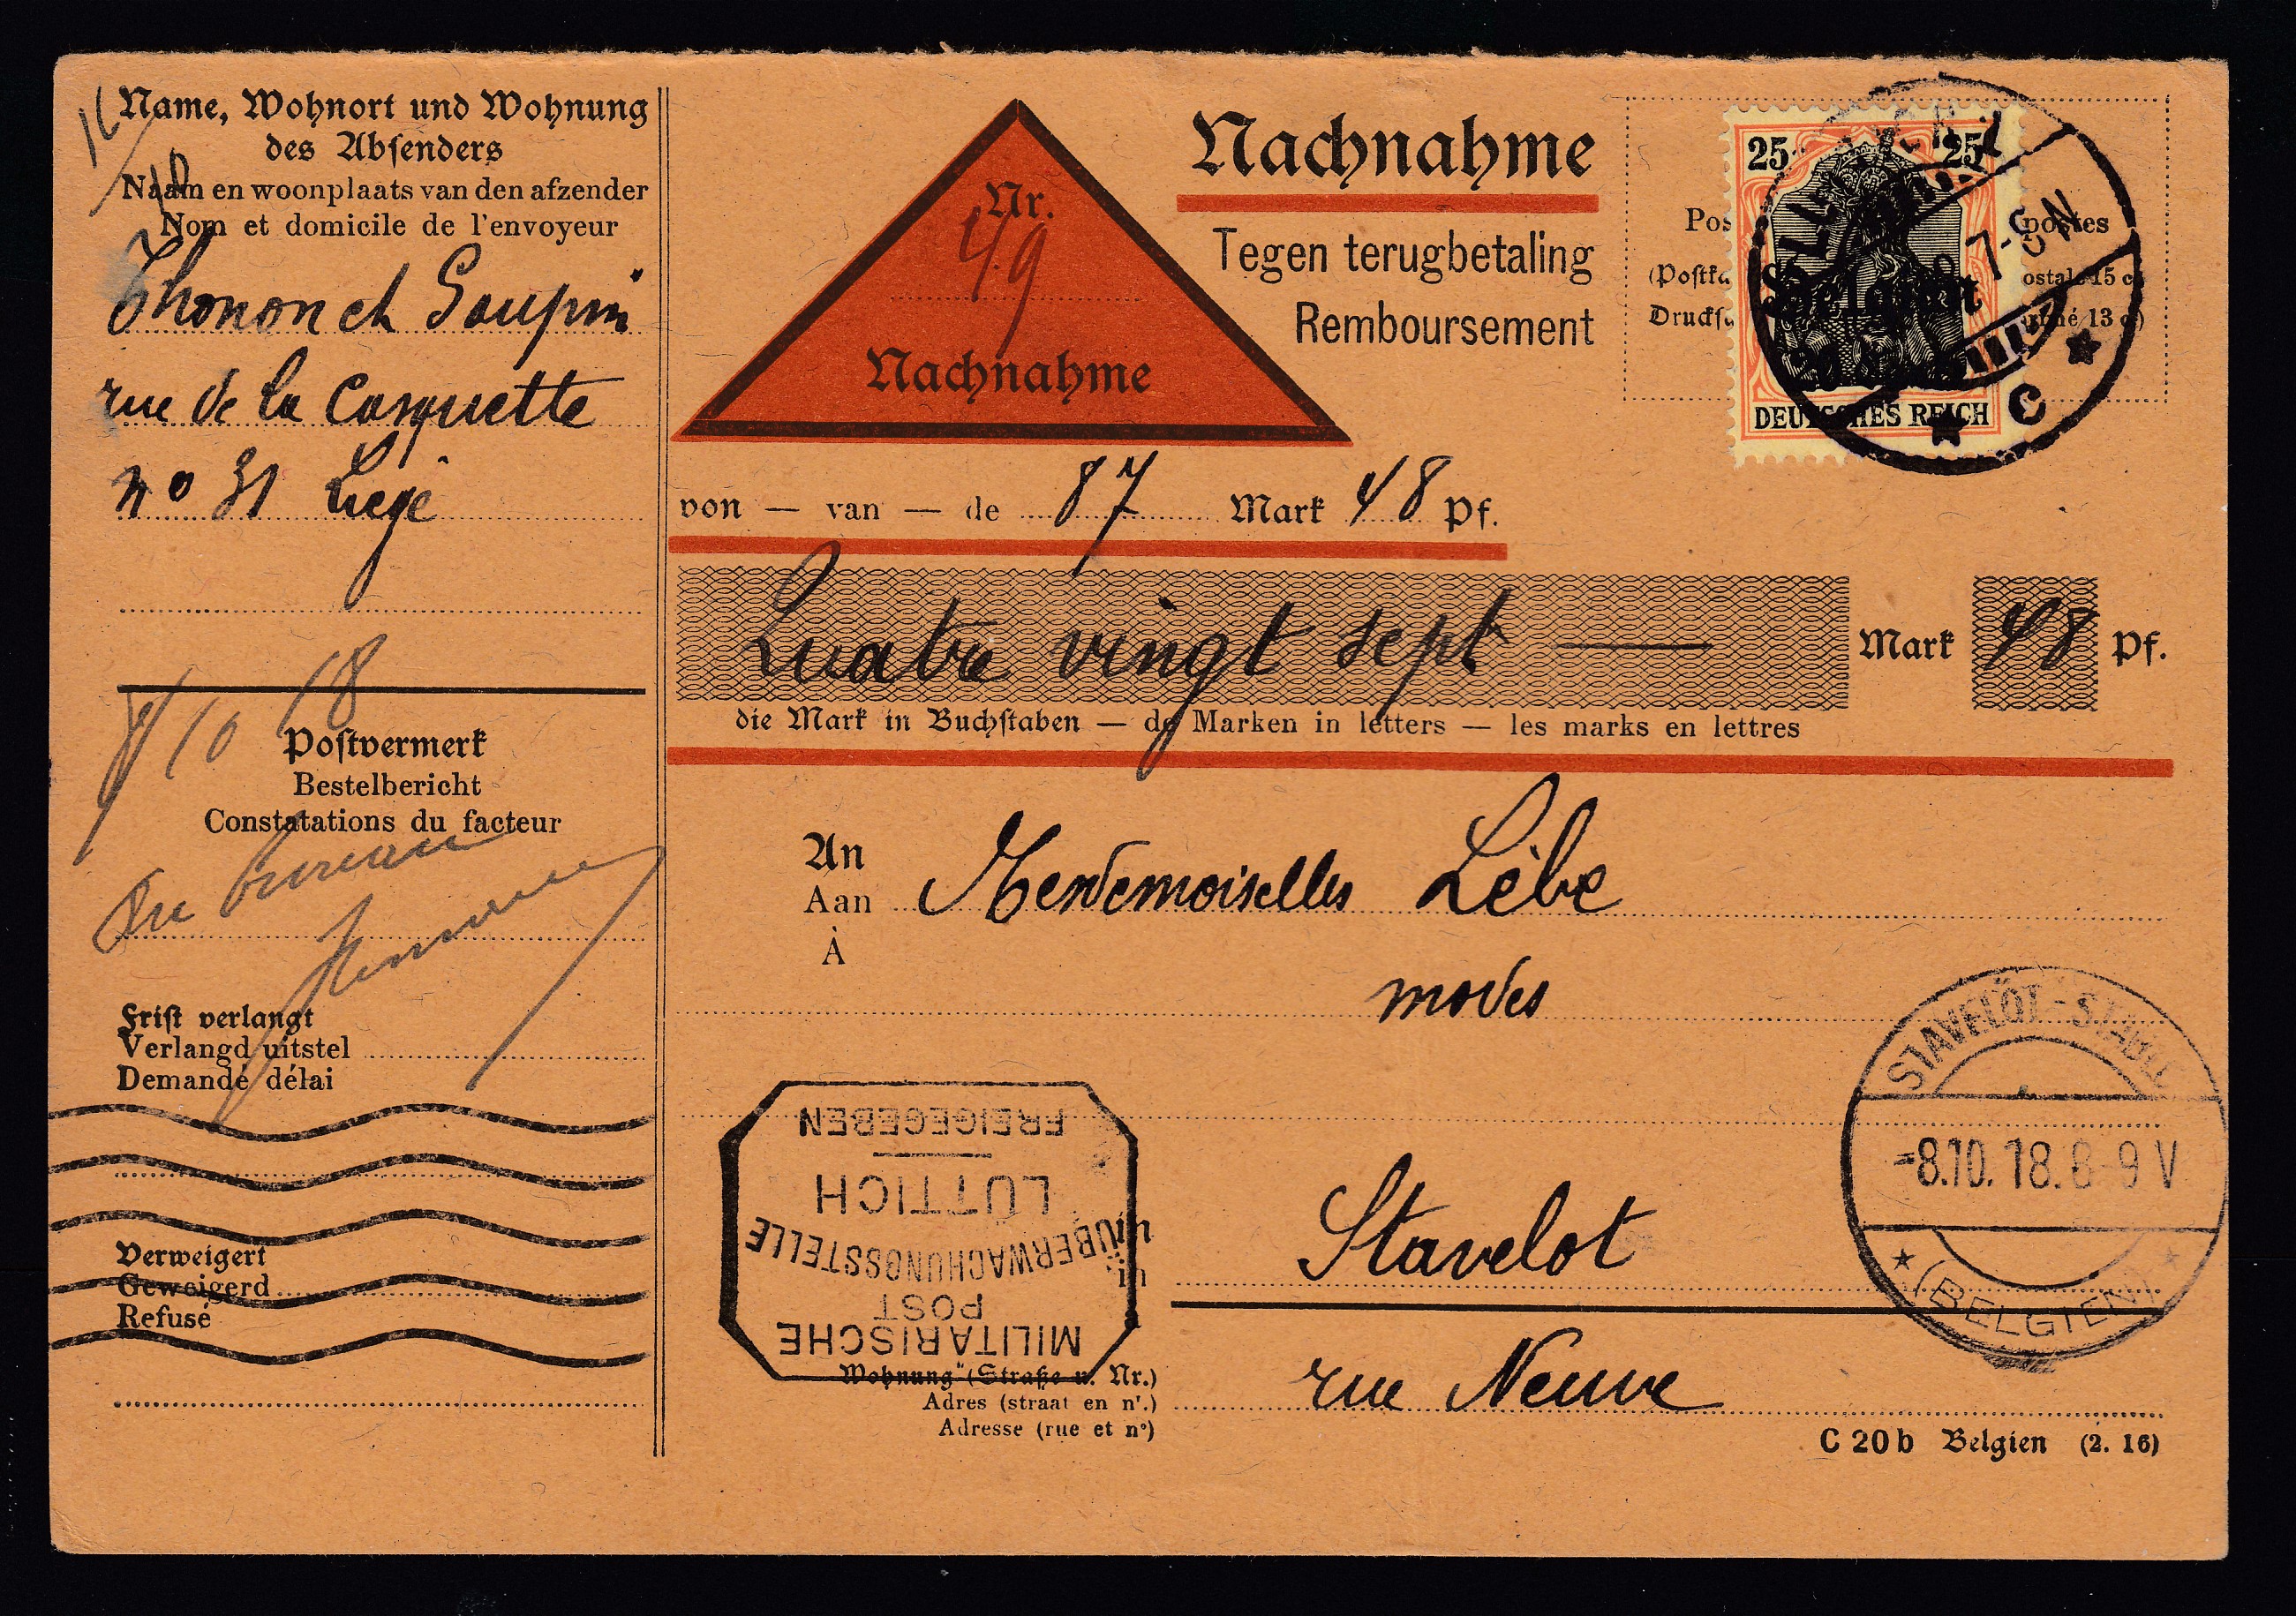 Name, Wohnort und Wohnung
des Absenders
Naam en woonplaats van den afzender
Nom et domicile de l'envoyeur
Thonon et Goupin
rue de la Casquette
no 31 Liege
8/10 18
Postvermerk
Bestelbericht
Constatations du facteur
Au bureau
Frist verlangt
Verlangd uitstel
Demande délai
Verweigert
Geweigerd
Refusé
Nr.
49
Nachnahme
Nachnahme
Tegen terugbetaling
Remboursement
25 25
Belgien
DEUTSCHES REICH
7-8 N
c
von — van — de 87 Mark 48 Pf.
Quatre vingt sept — Mark 48 Pf.
die Mark in Buchstaben — de Marken in letters — les marks en lettres
An
Aan
À
Mesdemoiselles Lèbe
modes
MILITÄRISCHE
POST
ÜBERWACHUNGSSTELLE
LÜTTICH
FREIGEGEBEN
in
in
Stavelot
STAVELOT-STADT
-8.10.18.8-9 V
(BELGIEN)
Wohnung (Straße u. Nr.)
Adres (straat en nr.)
Adresse (rue et no)
rue Neuve
C 20 b Belgien (2. 16)